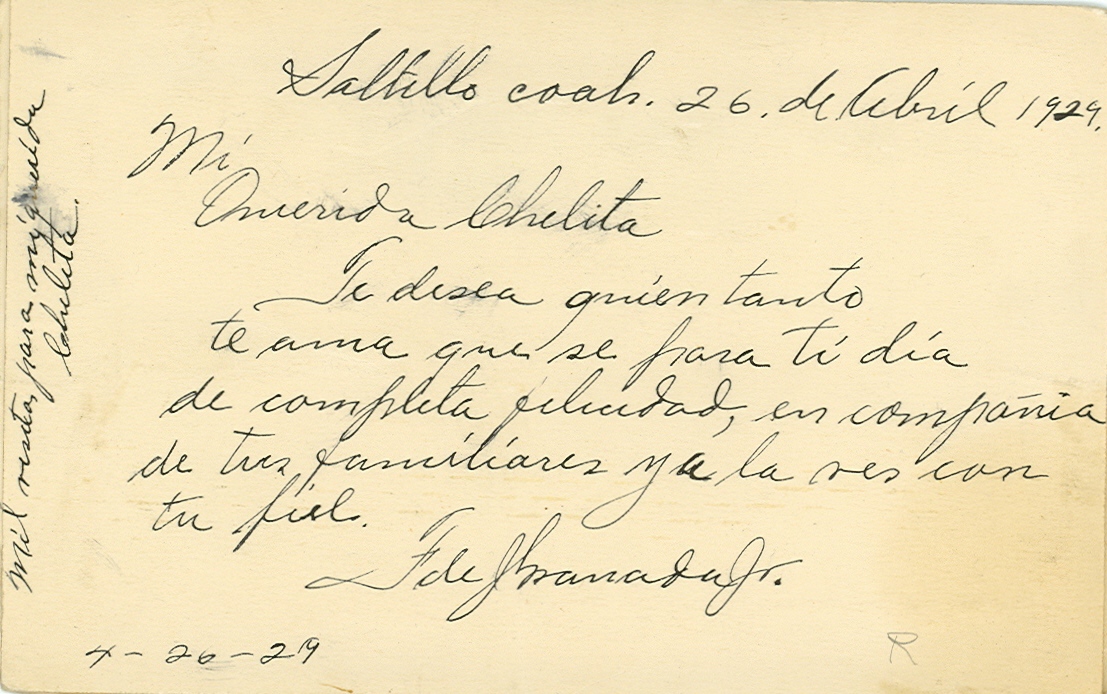 Saltillo coah. 26. de Abril 1929.
Mi
Querida Chelita
Te desea quien tanto
te ama que se para ti día
de completa felicidad, en compañia
de tus familiares y a la ves con
tu fiel.
F de Granada Jr.
4-26-29
R
Mil para mi querida
Chelita.